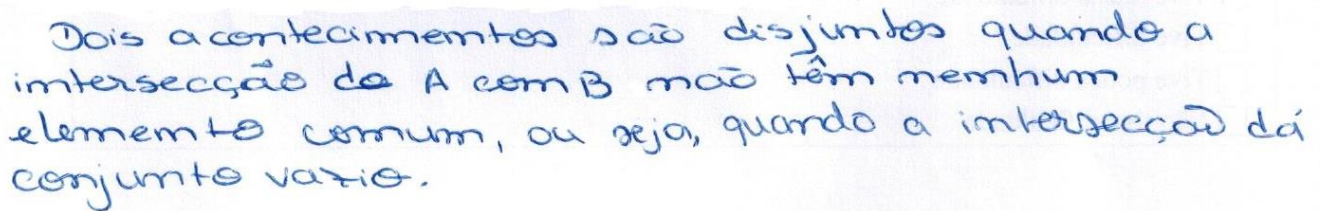 Dois acontecimentos são disjuntos quando a
intersecção de A com B não têm nenhum
elemento comum, ou seja, quando a intersecção dá
conjunto vazio.